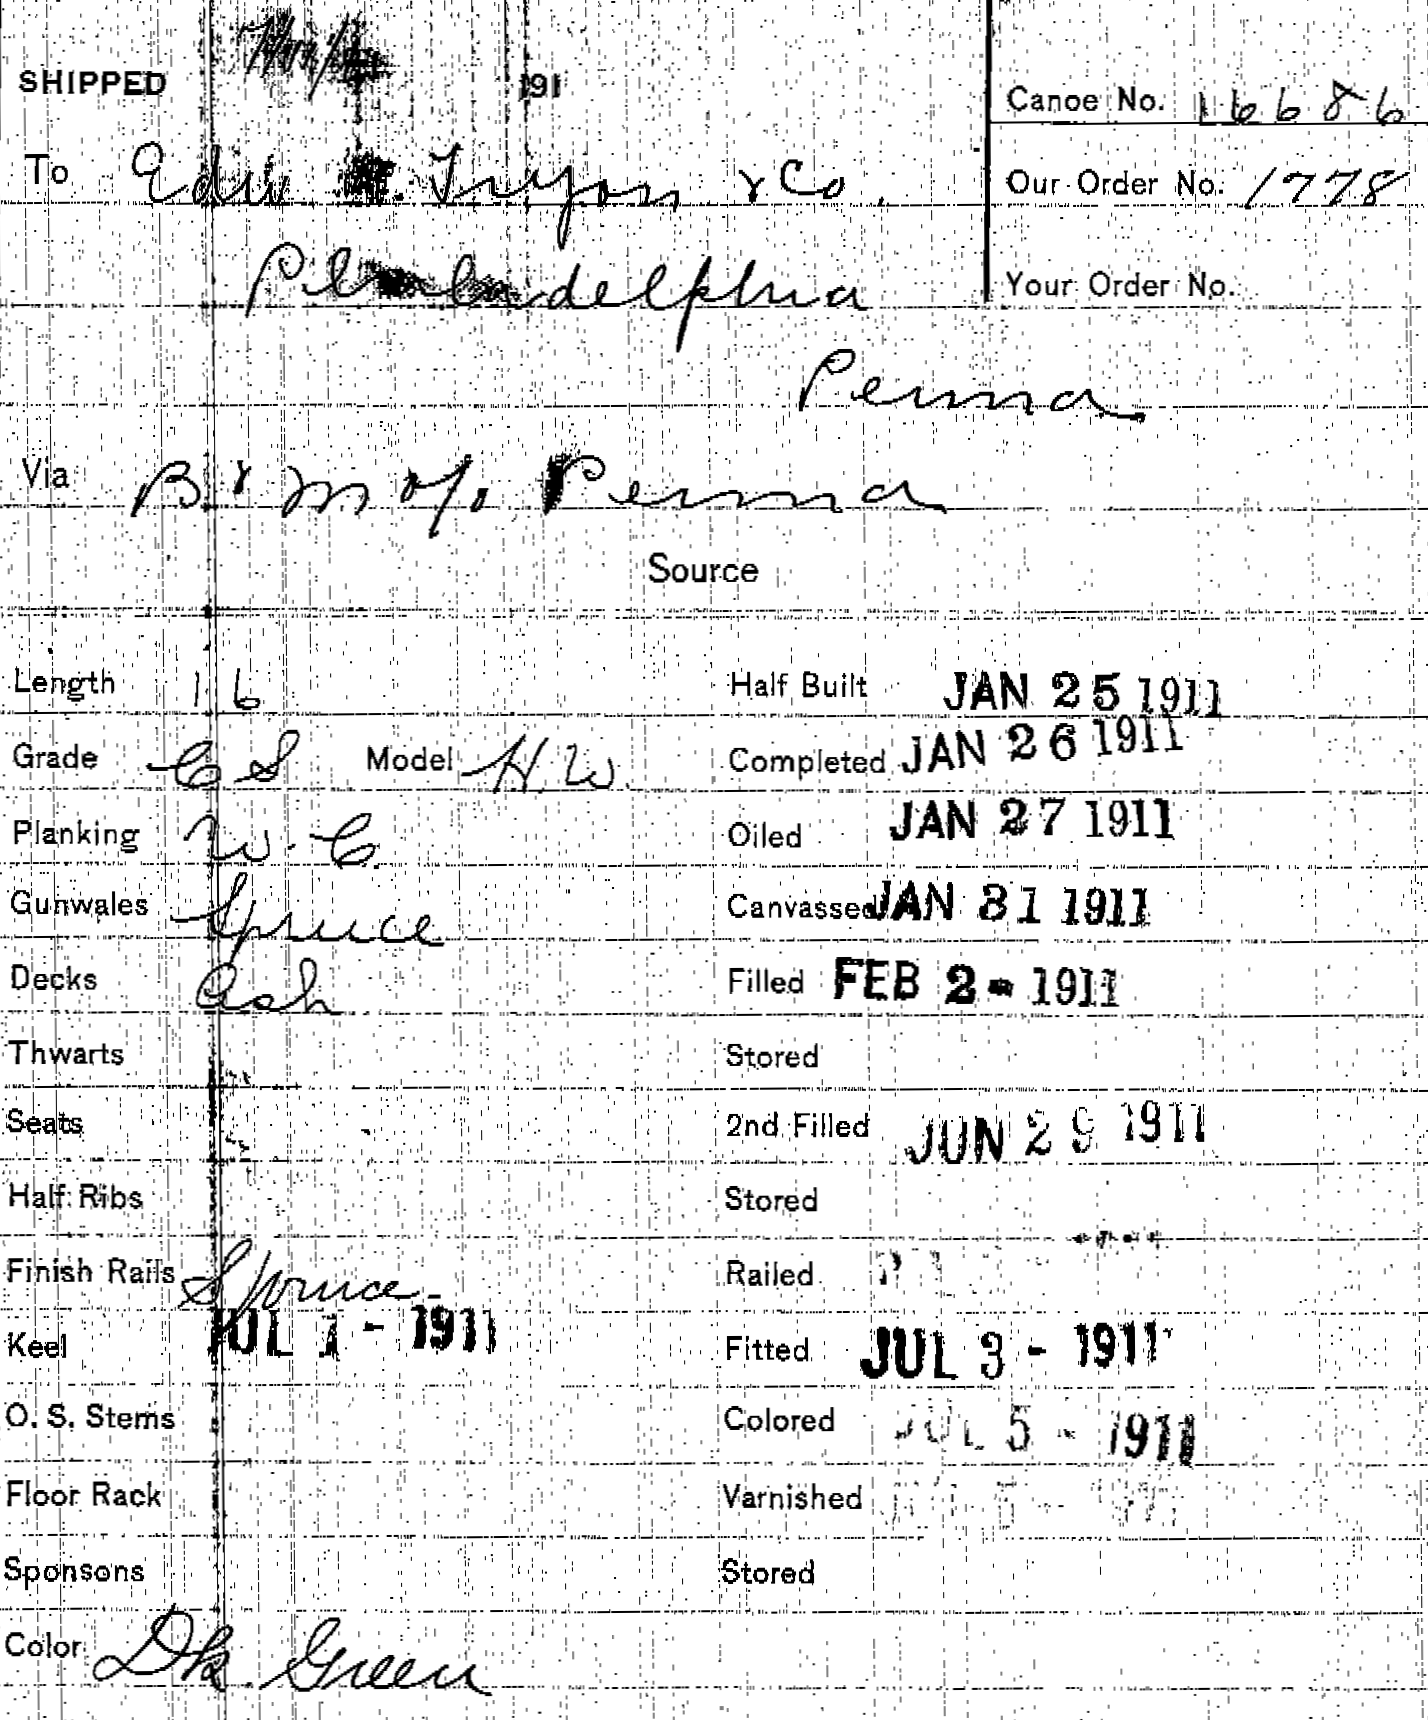 SHIPPED 191
Canoe No. 16686
To Edw. Tryon & Co.
Our Order No. 1778
Philadelphia
Your Order No.
Penna.
Via B & M c/o Penna
Source
Length 16 Half Built JAN 25 1911
Grade CS Model H.W. Completed JAN 26 1911
Planking W.C. Oiled JAN 27 1911
Gunwales Spruce Canvassed JAN 31 1911
Decks Ash Filled FEB 2 - 1911
Thwarts Stored
Seats 2nd Filled JUN 29 1911
Half Ribs Stored
Finish Rails Spruce Railed
Keel JUL 1 - 1911 Fitted JUL 3 - 1911
O. S. Stems Colored JUL 5 - 1911
Floor Rack Varnished
Sponsons Stored
Color Dk. Green